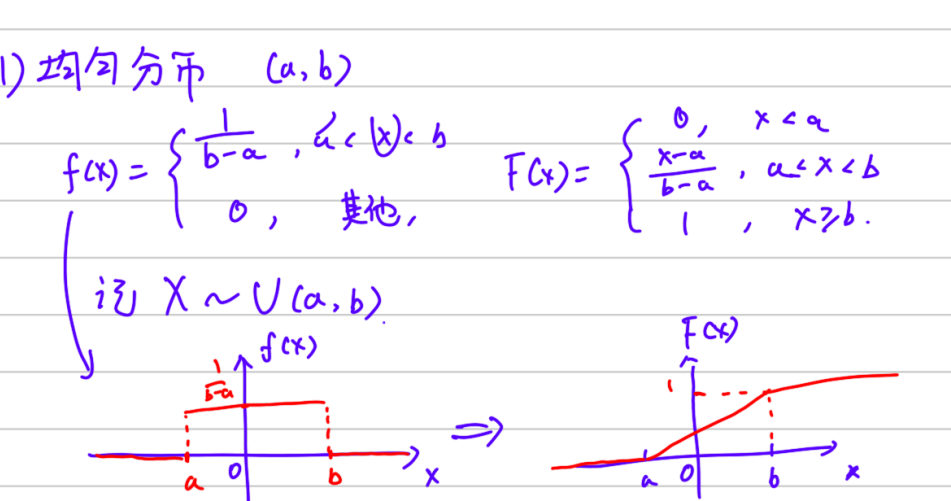 1) 均匀分布 (a, b)
f(x) = { 1/(b-a) , a < x < b
0 , 其他,
F(x) = { 0, x < a
(x-a)/(b-a) , a ≤ x < b
1 , x ≥ b.
记 X ~ U(a, b).
f(x)
1/(b-a)
a 0 b x
⇒
F(x)
1
a 0 b x